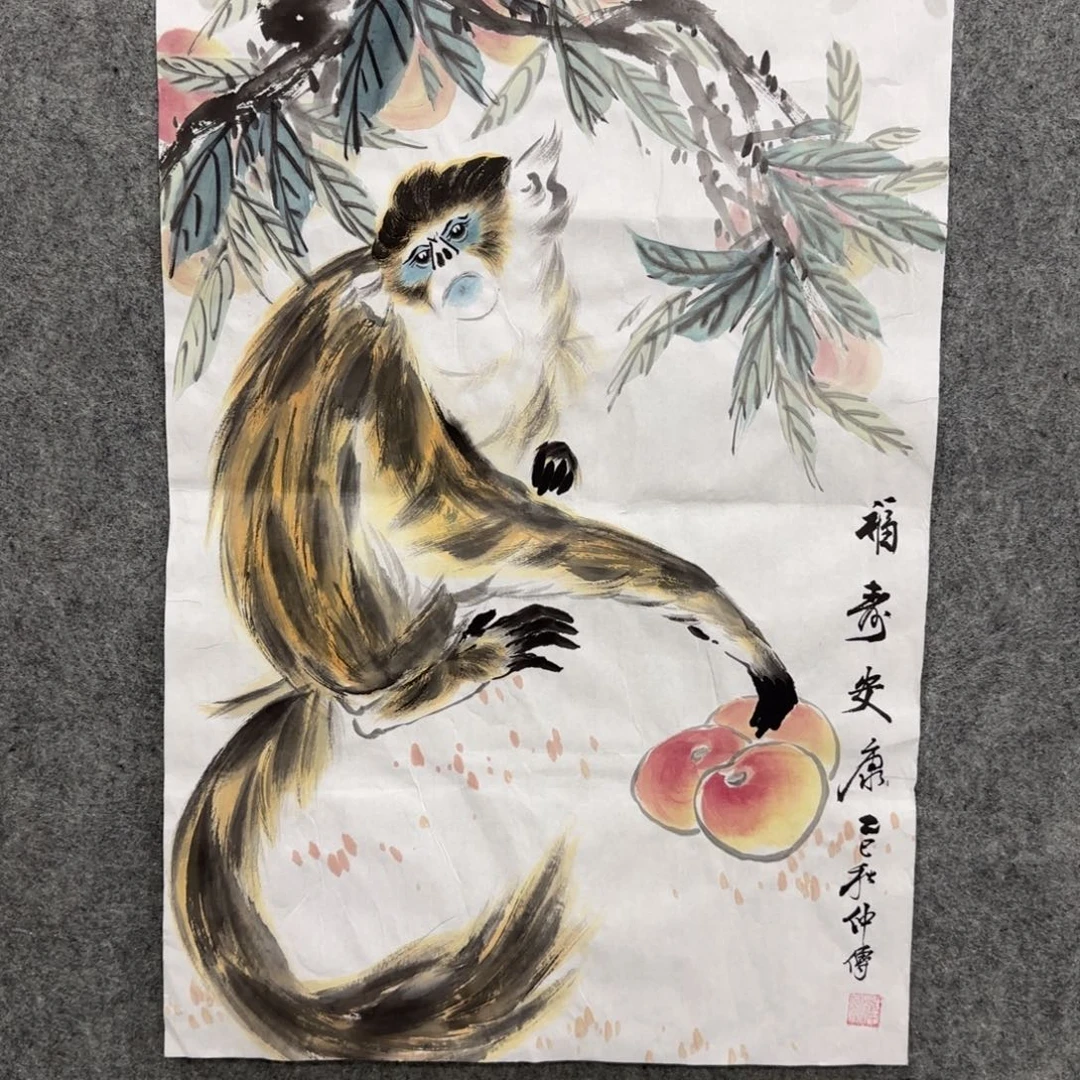 福寿安康
乙巳秋仲傳